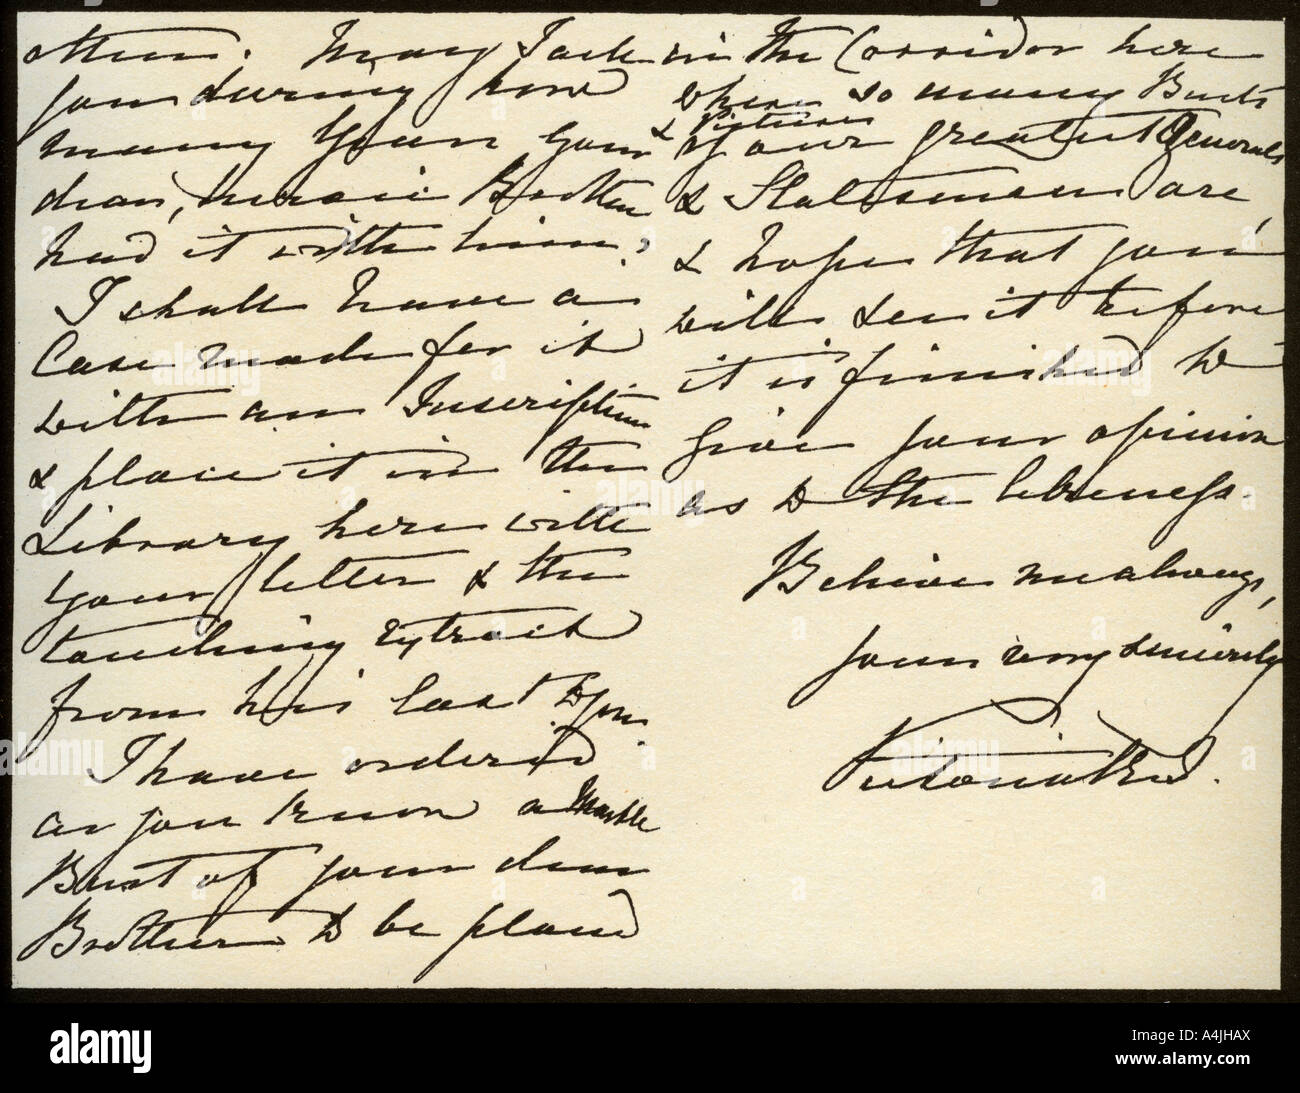 other. May I ask
you during how
many years your
dear, heroic Brother
had it with him?
I shall have a
Case made for it
with an Inscription
& place it in the
Library here with
your letter & the
touching extract
from his last to you.
I have ordered
as you know a Marble
Bust of your dear
Brother to be placed
in the Corridor here
where so many Busts
& Pictures
of our greatest Generals
& Statesmen are,
& hope that you
will see it before
it is finished to
give your opinion
as to the likeness.
Believe me always,
yours very sincerely
Victoria R I.
alamy
Image ID: A4JHAX
www.alamy.com